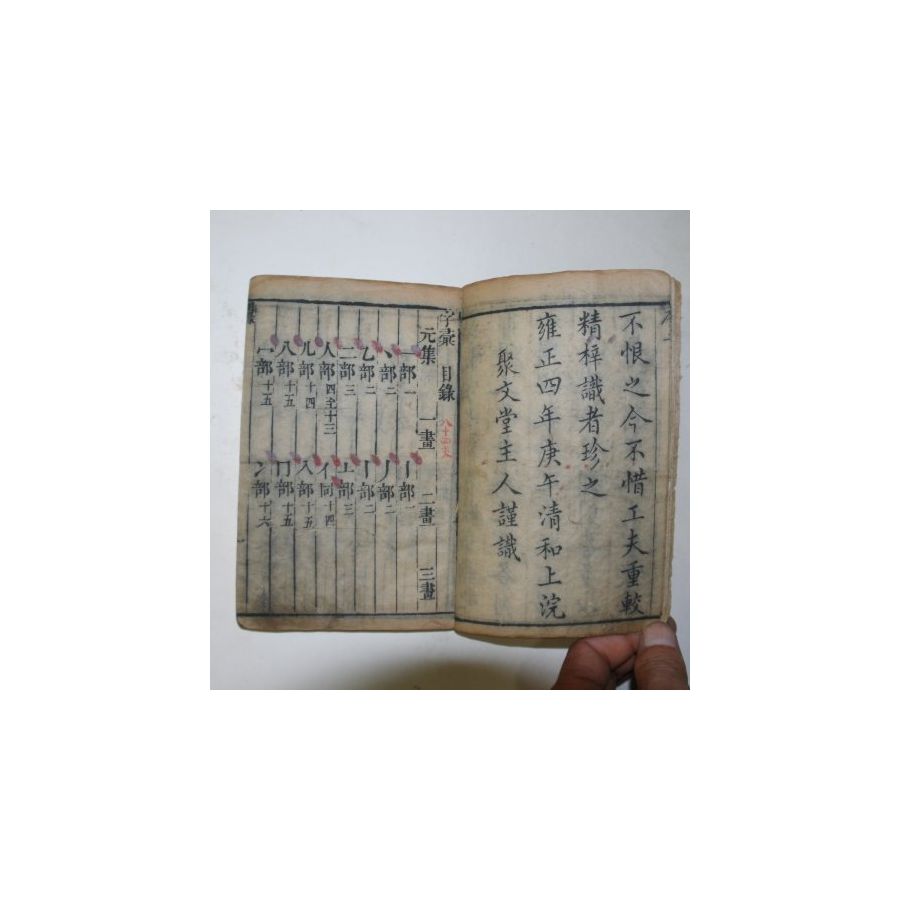 不恨之今不惜工夫重較
精梓識者珍之
雍正四年庚午清和上浣
聚文堂主人謹識
字彙 目錄
元集 一畫 二畫 三畫
一部一 丨部一
丶部二 丿部二
乙部二 亅部二
二部三 亠部三
人部四至十三 亻同十四
儿部十四 入部十五
八部十五 冂部十五
冖部十五 冫部十六